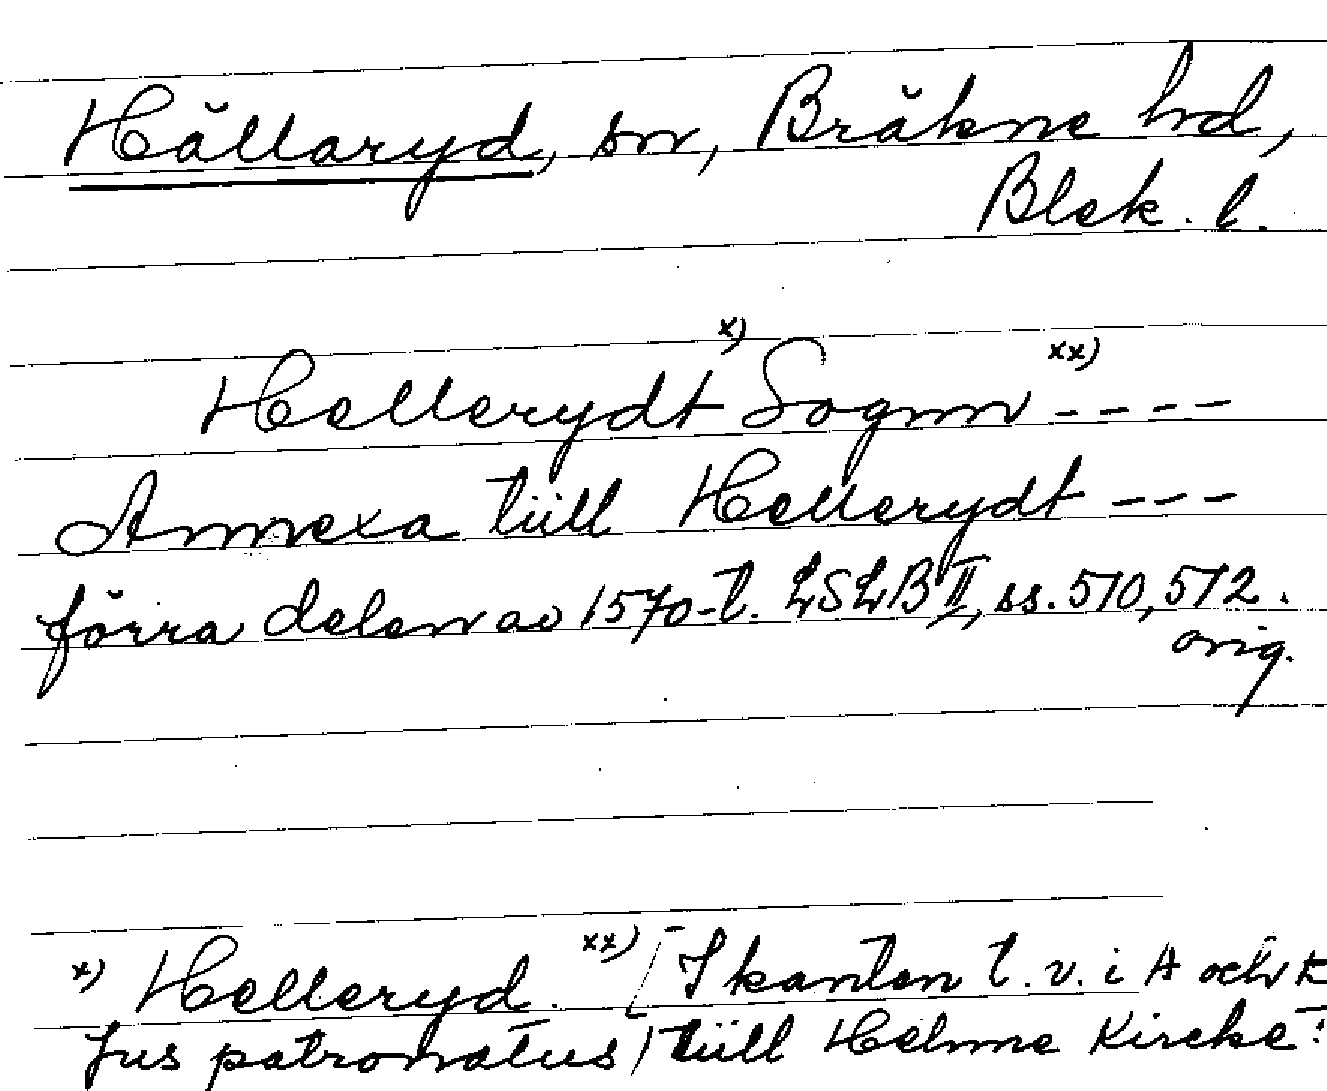 Hällaryd, sn, Bräkne hd,
Blek. l.
Hellerydt x) Sognn xx) ----
Annexa tiill Hellerydt ---
förra delen av 1570-t. LSLB II, ss. 510, 572.
orig.
x) Helleryd. xx) [I kanten t. v. i A och
Jus patronatus) tiill Kircke: